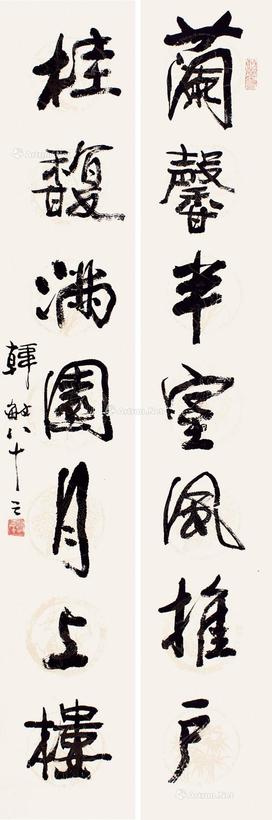 蘭馨半室風推戶
桂馥滿園月上樓
韓敏八十之